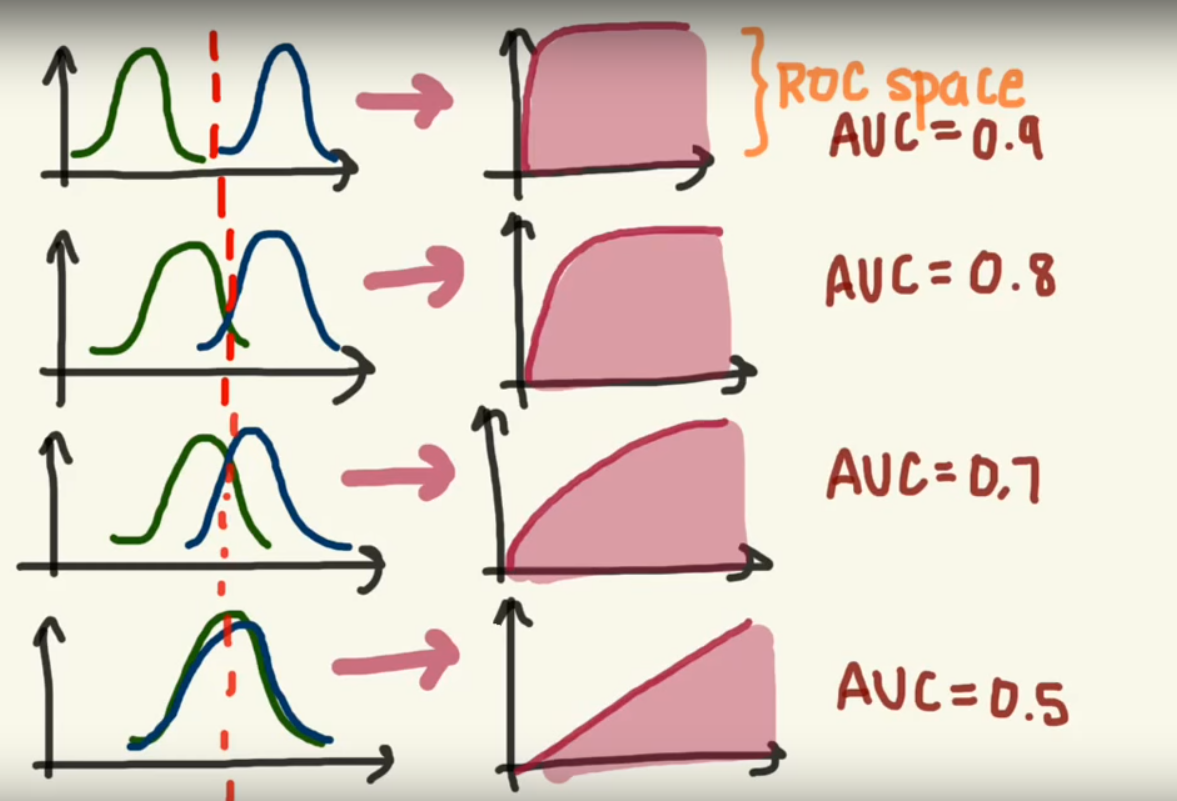 ROC space
AUC = 0.9
AUC = 0.8
AUC = 0.7
AUC = 0.5